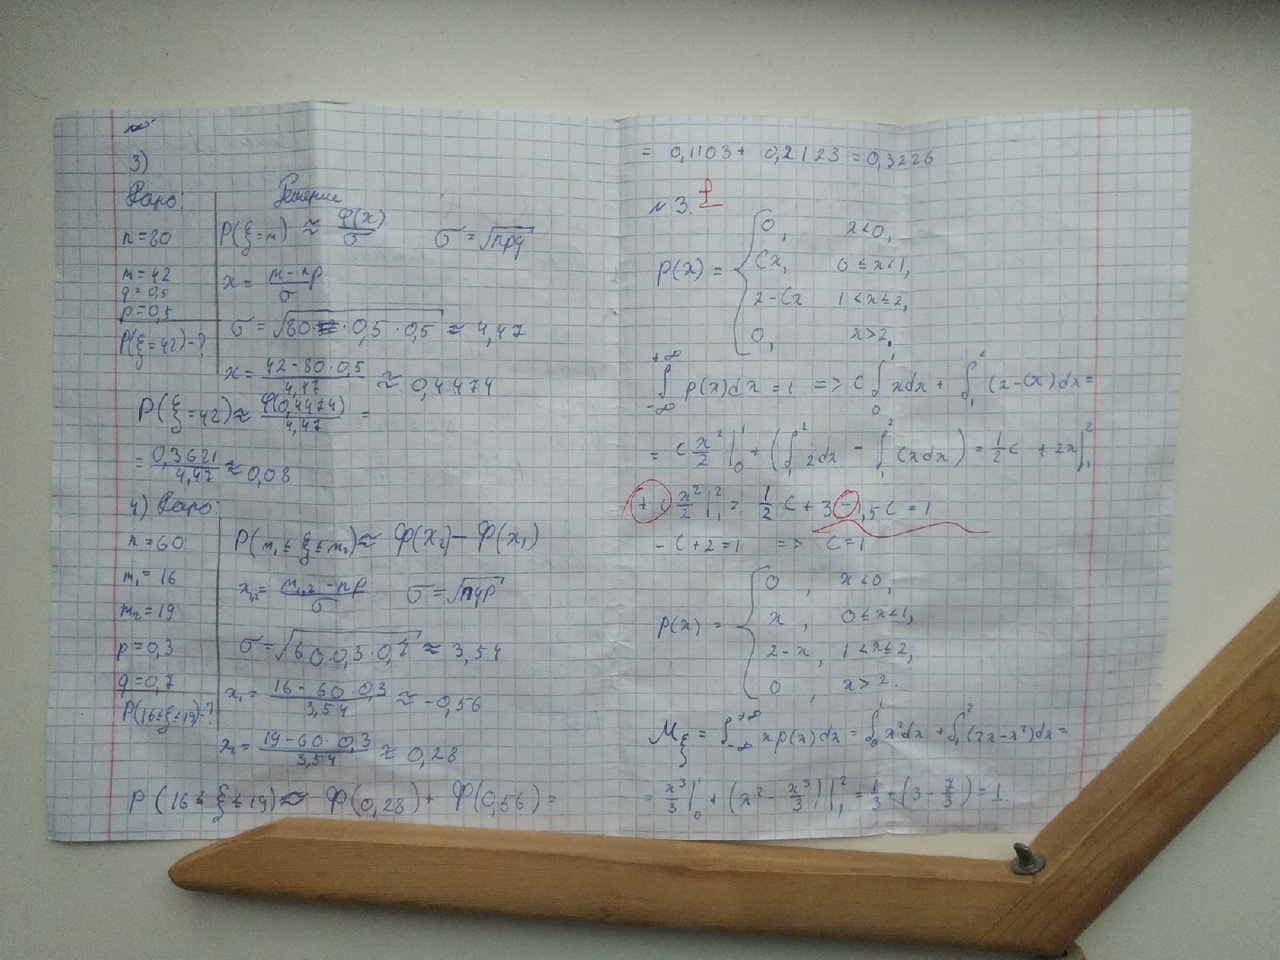 3)
Дано:
Решение
n=80
P(ξ=m) ≈ φ(x)/σ    σ=√npq
m=42
q=0,5
p=0,5
x = (m-np)/σ
P(ξ=42)-?
σ=√80·0,5·0,5 ≈ 4,47
x = (42-80·0,5)/4,47 ≈ 0,4474
P(ξ=42) ≈ φ(0,4474)/4,47 =
= 0,3621/4,47 ≈ 0,08
4) Дано:
n=60
m₁=16
m₂=19
p=0,3
q=0,7
P(16≤ξ≤19)-?
P(m₁≤ξ≤m₂) ≈ Ф(x₂)-Ф(x₁)
x₁,₂ = (m₁,₂-np)/σ    σ=√nqp
σ=√60·0,3·0,7 ≈ 3,54
x₁ = (16-60·0,3)/3,54 ≈ -0,56
x₂ = (19-60·0,3)/3,54 ≈ 0,28
P(16≤ξ≤19) ≈ Ф(0,28)+Ф(0,56) =
= 0,1103+ 0,2123 = 0,3226
№3.
p(x) = { 0, x<0,
Cx, 0≤x<1,
2-Cx 1<x≤2,
0, x>2.
∫₋∞^+∞ p(x)dx = 1 => C∫₀¹ xdx + ∫₁² (2-Cx)dx =
= C x²/2 |₀¹ + (∫₁² 2dx - ∫₁² Cxdx) = 1/2 C + 2x|₁²
+ C x²/2 |₁² = 1/2 C + 3 - 1,5C = 1
-C+2=1 => C=1
p(x) = { 0, x<0,
x, 0≤x<1,
2-x, 1<x≤2,
0, x>2.
Mξ = ∫₋∞^+∞ xp(x)dx = ∫₀¹ x²dx + ∫₁² (2x-x²)dx =
= x³/3 |₀¹ + (x² - x³/3)|₁² = 1/3 + (3 - 7/3) = 1.